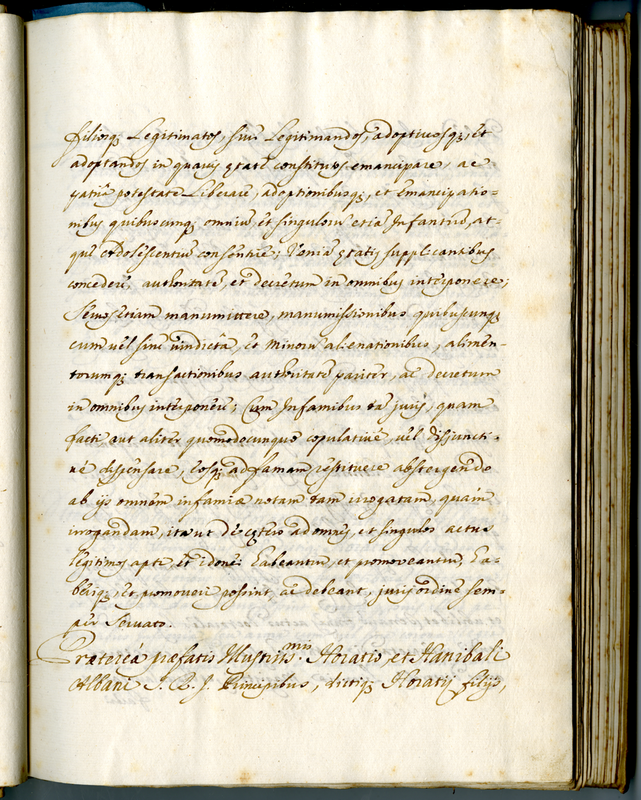 filiosq; Legitimatos, siuè Legitimandos, adoptiuosq;, et
adoptandos in quauis ętatè constitutos emancipare, ac
patriâ potestate Liberare, adoptionibusq;, et emancipatio-
nibus quibuscunq; omniũ et singulorũ etiã Infantiũ, at-
què Adolescentũ consentire; Veniã ętatis supplicantibus
concedere, authoritatẽ, et decretum in omnibus interponere;
Seruos etiam manumittere, manumissionibus quibuscunq;
cum uel sine uindictâ, et Minorũ alienationibus, alimen-
torumq; transactionibus authoritatẽ pariter, ac decretum
in omnibus interponere; Cum Infamibus tã juris, quam
facti, aut aliter quomodocunque copulatiuè, uel disjuncti-
uè dispensare, eosq; ad famam restituere abstergendo
ab ijs omnem infamiæ notam tam irrogatam, quàm
irrogandam, ita ut de cętero ad omnes, et singulos actus
legitimos apti, et idonei habeantur, et promoueantur, ha-
beriq;, et promoueri possint, ac debeant, juris ordine sem-
per seruato.
Prætereà præfatis Illustriss.mis Horatio, et Hanibali
Albani S. R. I. Principibus, dictiq; Horatij filijs,